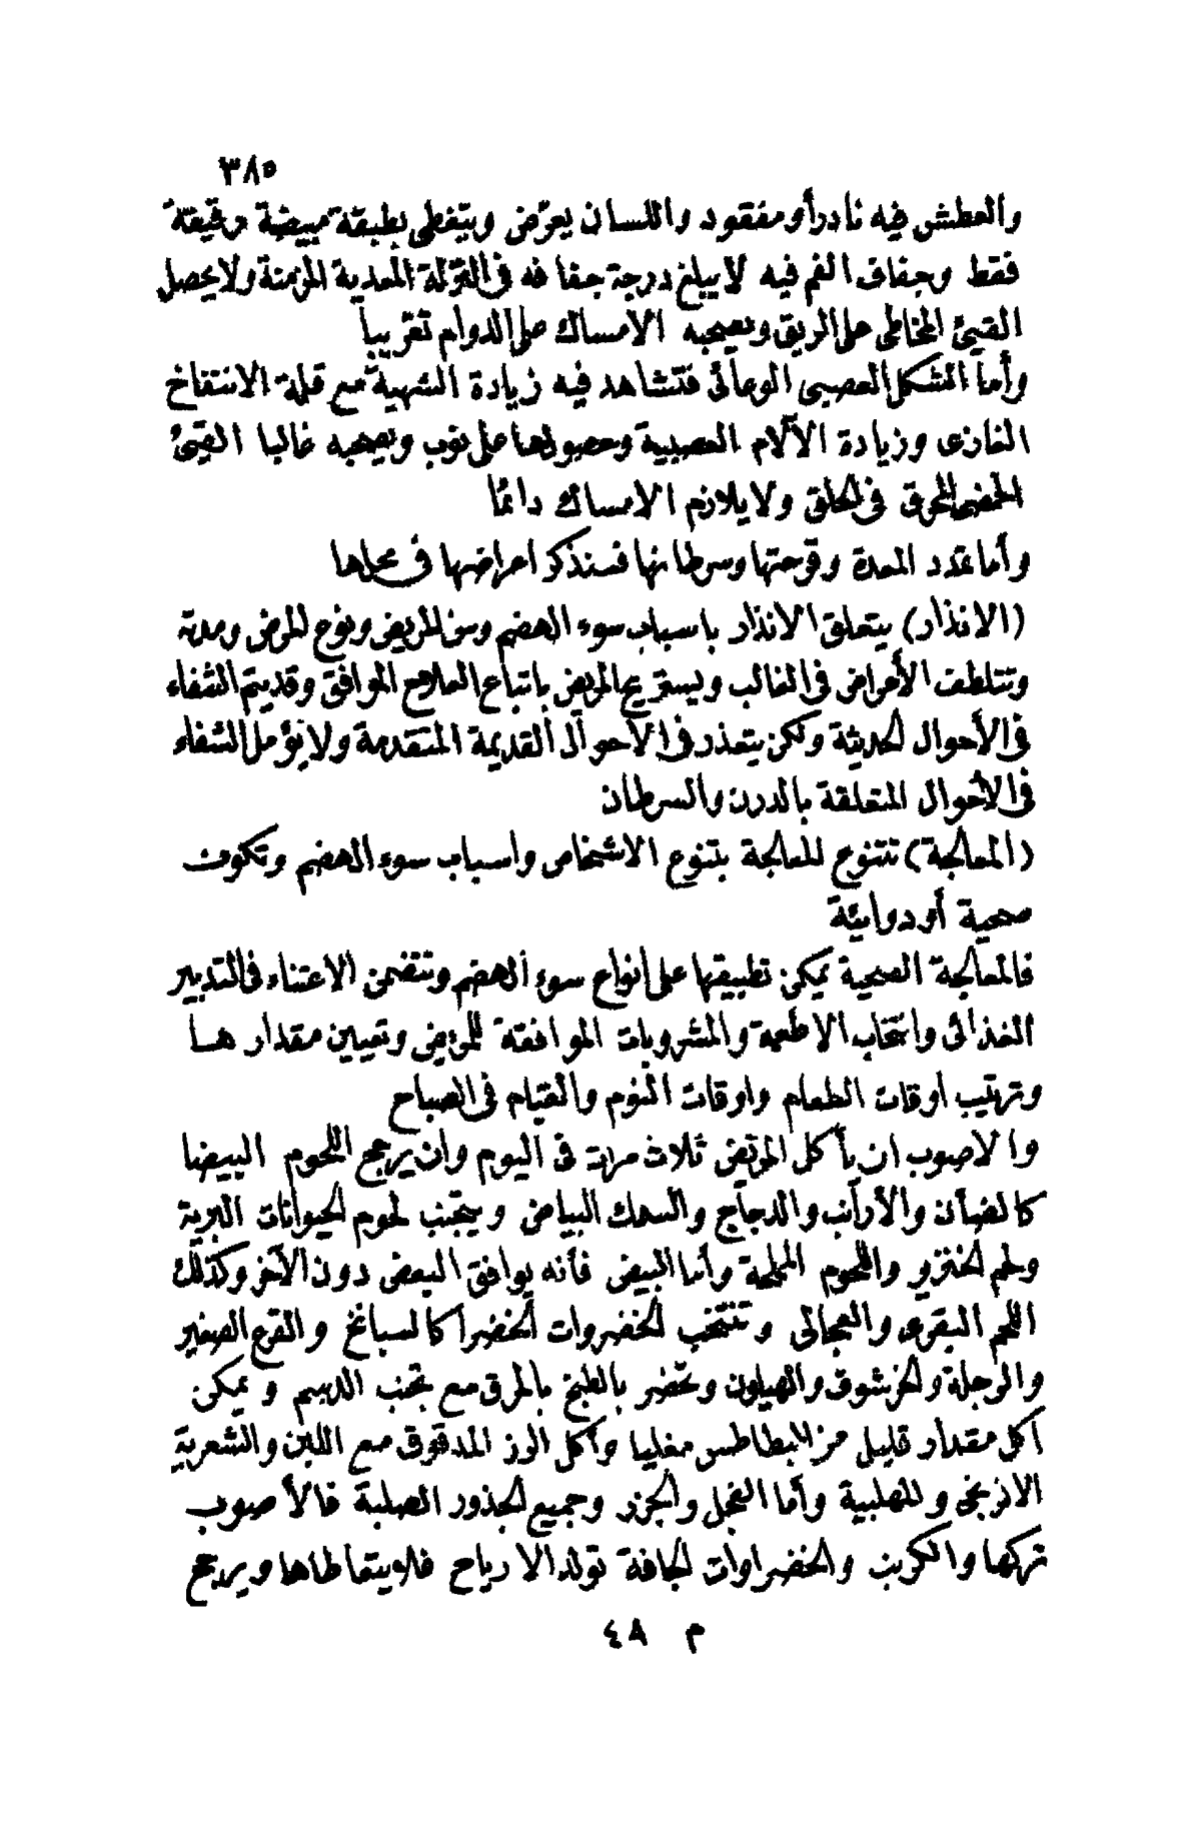 ٣٨٥
والعطش فيه نادرأو مفقود واللسان يعرّض ويتغطى بطبقة مبيضة رقيقة
فقط وجفاف الفم فيه لا يبلغ درجة جفافه فى النزلة المعدية المزمنة ولا يحصل
القيئ المخاطى على الريق ويصحبه الامساك على الدوام تقريباً
وأما الشكل العصبى الوعائى فتشاهد فيه زيادة الشهية مع قلة الانتفاخ
الغازى وزيادة الآلام العصبية وحصولها على نوب ويصحبه غالبا القيئ
الحمضى المحرق فى الحلق ولا يلازم الامساك دائما
وأما تمدد المعدة وقرحتها وسرطانها فسنذكر اعراضها فى محلها
(الانذار) يتعلق الانذار باسباب سوء الهضم وسن المريض ونوع المرض ومدته
وتتلطف الأعراض فى الغالب ويستريح المريض باتباع العلاج الموافق وقد يتم الشفاء
فى الأحوال الحديثة ولكن يتعذر فى الأحوال القديمة المتقدمة ولا يؤمل الشفاء
فى الأحوال المتعلقة بالدرن والسرطان
(المعالجة) تتنوع المعالجة بتنوع الاشخاص واسباب سوء الهضم وتكون
صحية أو دوائية
فالمعالجة الصحية يمكن تطبيقها على انواع سوء الهضم وتتضمن الاعتناء فى التدبير
الغذائى وانتخاب الاطعمة والمشروبات الموافقة للمريض وتعيين مقدارها
وترتيب اوقات الطعام واوقات النوم والقيام فى الصباح
والاصوب ان يأكل المريض ثلاث مرات فى اليوم وان يرجح اللحوم البيضا
كالضأن والأرانب والدجاج والسمك البياض ويتجنب لحوم الحيوانات البرية
ولحم الخنزير واللحوم المملحة وأما البيض فأنه يوافق البعض دون الآخر وكذلك
اللحم البقرى والعجالى وتنتخب الخضروات الخضرا كالسبانخ والقرع الصغير
والرجلة والخرشوف والهليون وتحضر بالطبخ بالمرق مع تجنب الدسم ويمكن
اكل مقدار قليل من البطاطس مغليا وأكل الرز المدقوق مع اللبن والشعرية
الافرنجى والمهلبية وأما الفجل والجزر وجميع الجذور الصلبة فالأصوب
تركها والكرنب والخضراوات الجافة تولد الارياح فلا يتعاطاها ويرجح
م ٤٨